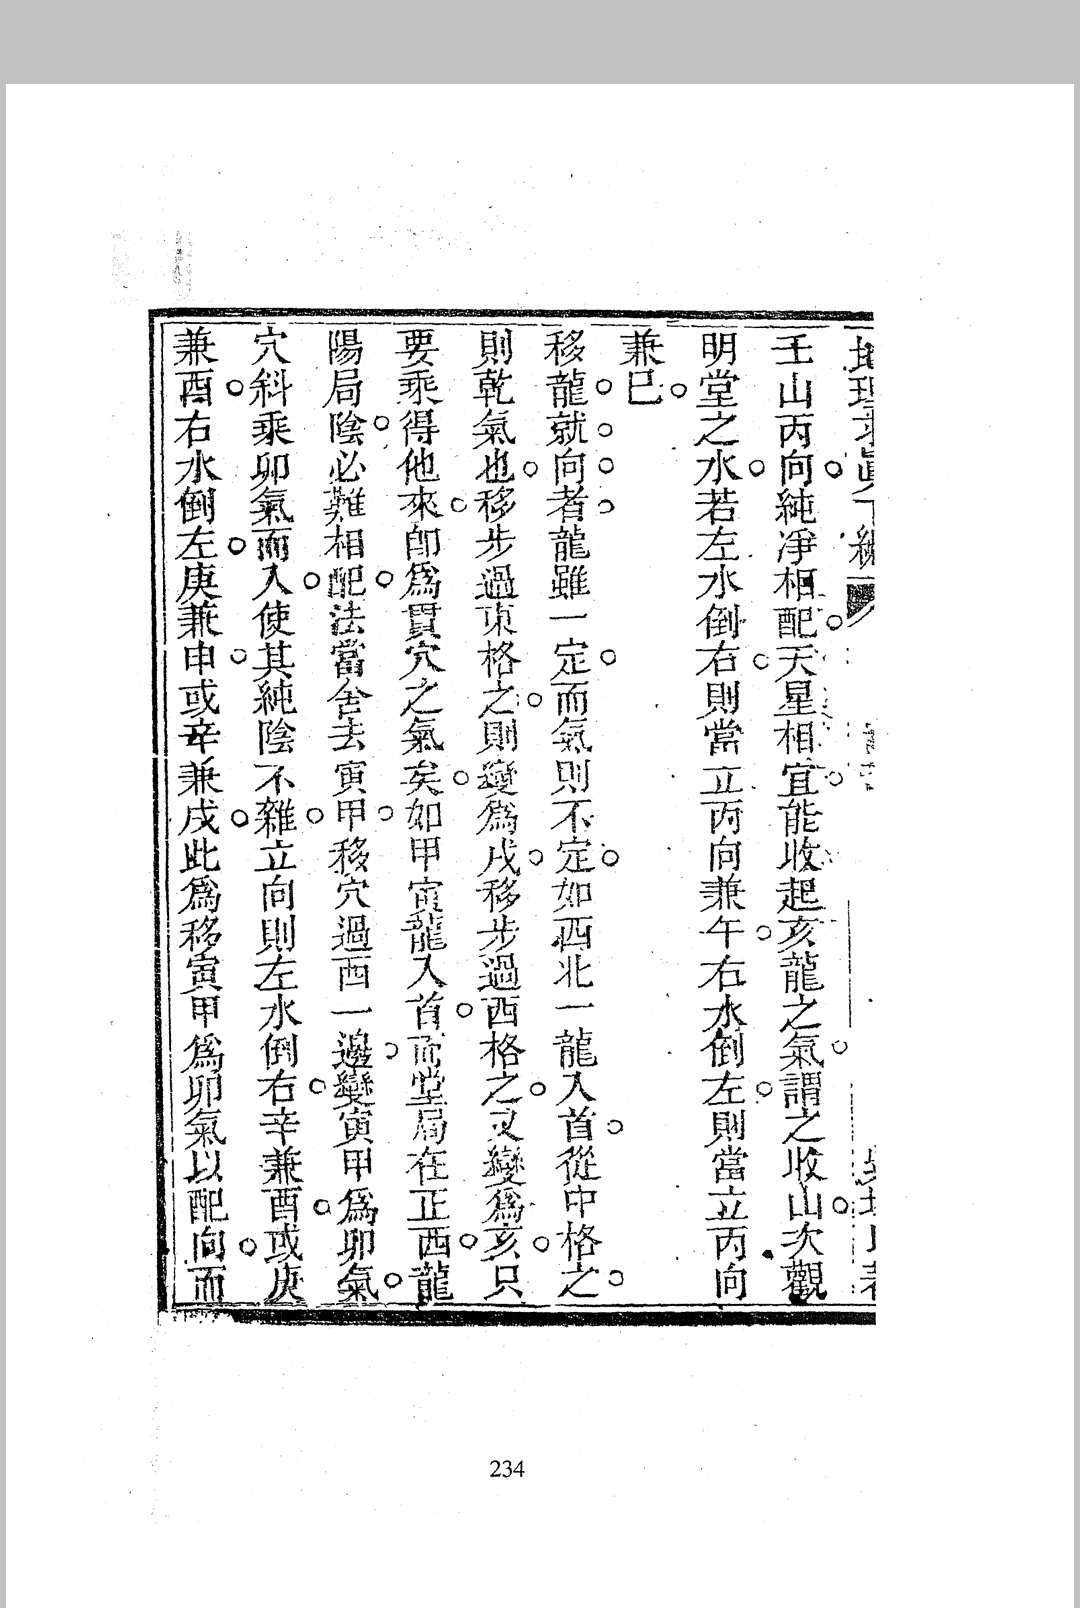 壬山丙向。純淨相配。天星相宜。能收起亥龍之氣。謂之收山。次觀
明堂之水。若左水倒右。則當立丙向兼午。右水倒左。則當立丙向
兼巳。
移龍。就。向。者。龍雖一定。而氣則不定。如西北一龍入首。從中格之。
則乾氣也。移步過東格之。則變爲戌。移步過西格之。又變爲亥。只
要乘得他來。卽爲貫穴之氣矣。如甲寅龍入首。而堂局在正西。龍
陽局陰。必難相配。法當舍去寅甲。移穴過西一邊。變寅甲爲卯氣。
穴斜乘卯氣而入。使其純陰不雜。立向則左水倒右。辛兼酉。或庚
兼酉。右水倒左。庚兼申。或辛兼戌。此爲移寅甲爲卯氣以配向。而
234